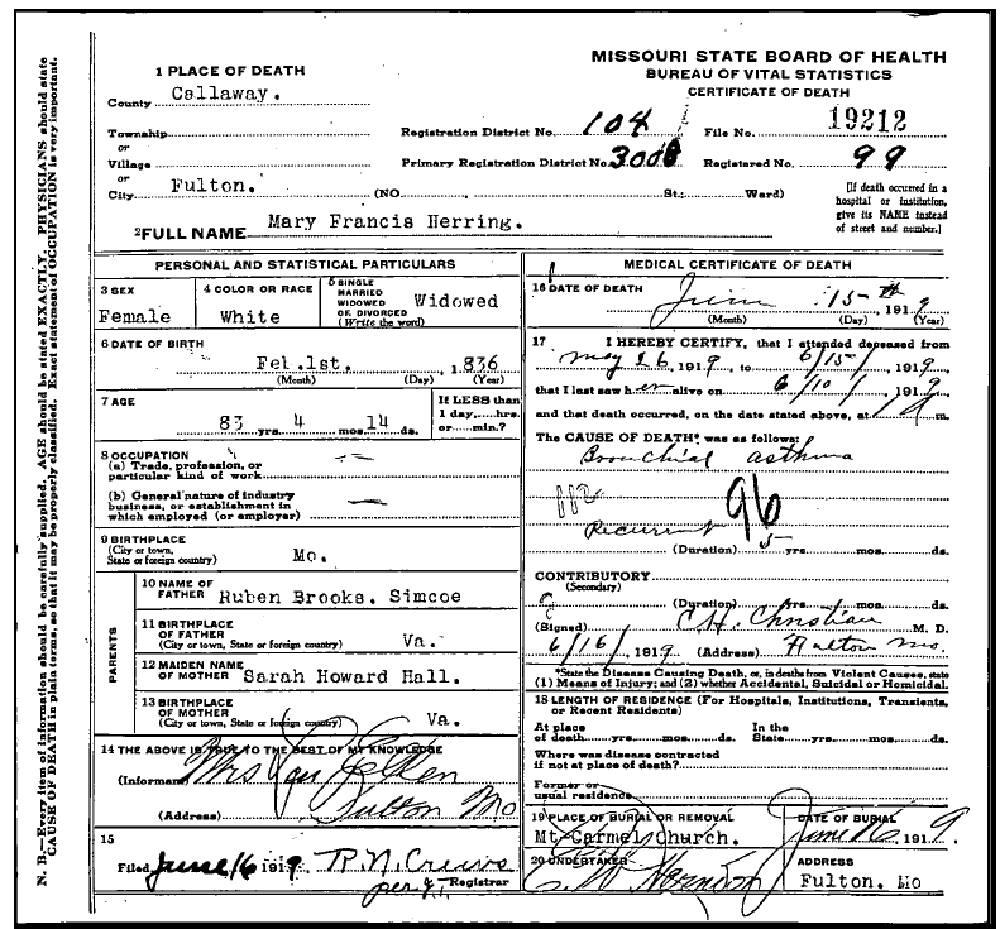 MISSOURI STATE BOARD OF HEALTH
BUREAU OF VITAL STATISTICS
CERTIFICATE OF DEATH
1 PLACE OF DEATH
County Callaway.
Township
or
Village
or
City Fulton. (NO. St: Ward)
Registration District No. 104
File No. 19212
Primary Registration District No.
Registered No. 99
[If death occurred in a
hospital or institution,
give its NAME instead
of street and number.]
2 FULL NAME Mary Francis Herring.
PERSONAL AND STATISTICAL PARTICULARS
3 SEX
Female
4 COLOR OR RACE
White
5 SINGLE
MARRIED
WIDOWED
OR DIVORCED
(Write the word)
Widowed
6 DATE OF BIRTH
Feb. 1st, 1836
(Month) (Day) (Year)
7 AGE
83 yrs. 4 mos. 14 ds.
If LESS than
1 day, hrs.
or min.?
8 OCCUPATION
(a) Trade, profession, or
particular kind of work
(b) General nature of industry
business, or establishment in
which employed (or employer)
9 BIRTHPLACE
(City or town,
State or foreign country)
Mo.
PARENTS
10 NAME OF
FATHER Ruben Brooks. Simcoe
11 BIRTHPLACE
OF FATHER
(City or town, State or foreign country) Va.
12 MAIDEN NAME
OF MOTHER Sarah Howard Hall.
13 BIRTHPLACE
OF MOTHER
(City or town, State or foreign country) Va.
14 THE ABOVE IS TRUE TO THE BEST OF MY KNOWLEDGE
(Informant) Mrs
(Address) Fulton Mo
15
Filed June 16 1919 R.N. Crews
per
Registrar
MEDICAL CERTIFICATE OF DEATH
16 DATE OF DEATH
June 15th, 1919
(Month) (Day) (Year)
17 I HEREBY CERTIFY, that I attended deceased from
May 26, 1919, to 6/15/, 1919
that I last saw her alive on 6/10/, 1919
and that death occurred, on the date stated above, at m.
The CAUSE OF DEATH* was as follows:
Bronchial asthma
112 96
Recurrent
(Duration) 5 yrs. mos. ds.
CONTRIBUTORY
(Secondary)
(Duration) yrs. mos. ds.
(Signed) C.H. Christian M. D.
6/16/, 1919 (Address) Fulton Mo.
*State the Disease Causing Death, or, in deaths from Violent Causes, state
(1) Means of Injury; and (2) whether Accidental, Suicidal or Homicidal.
18 LENGTH OF RESIDENCE (For Hospitals, Institutions, Transients,
or Recent Residents)
At place
of death yrs. mos. ds.
In the
State yrs. mos. ds.
Where was disease contracted
if not at place of death?
Former or
usual residence
19 PLACE OF BURIAL OR REMOVAL
Mt. Carmel Church.
DATE OF BURIAL
June 16 1919.
20 UNDERTAKER
ADDRESS
Fulton. Mo
N. B.—Every item of information should be carefully supplied. AGE should be stated EXACTLY. PHYSICIANS should state
CAUSE OF DEATH in plain terms, so that it may be properly classified. Exact statement of OCCUPATION is very important.